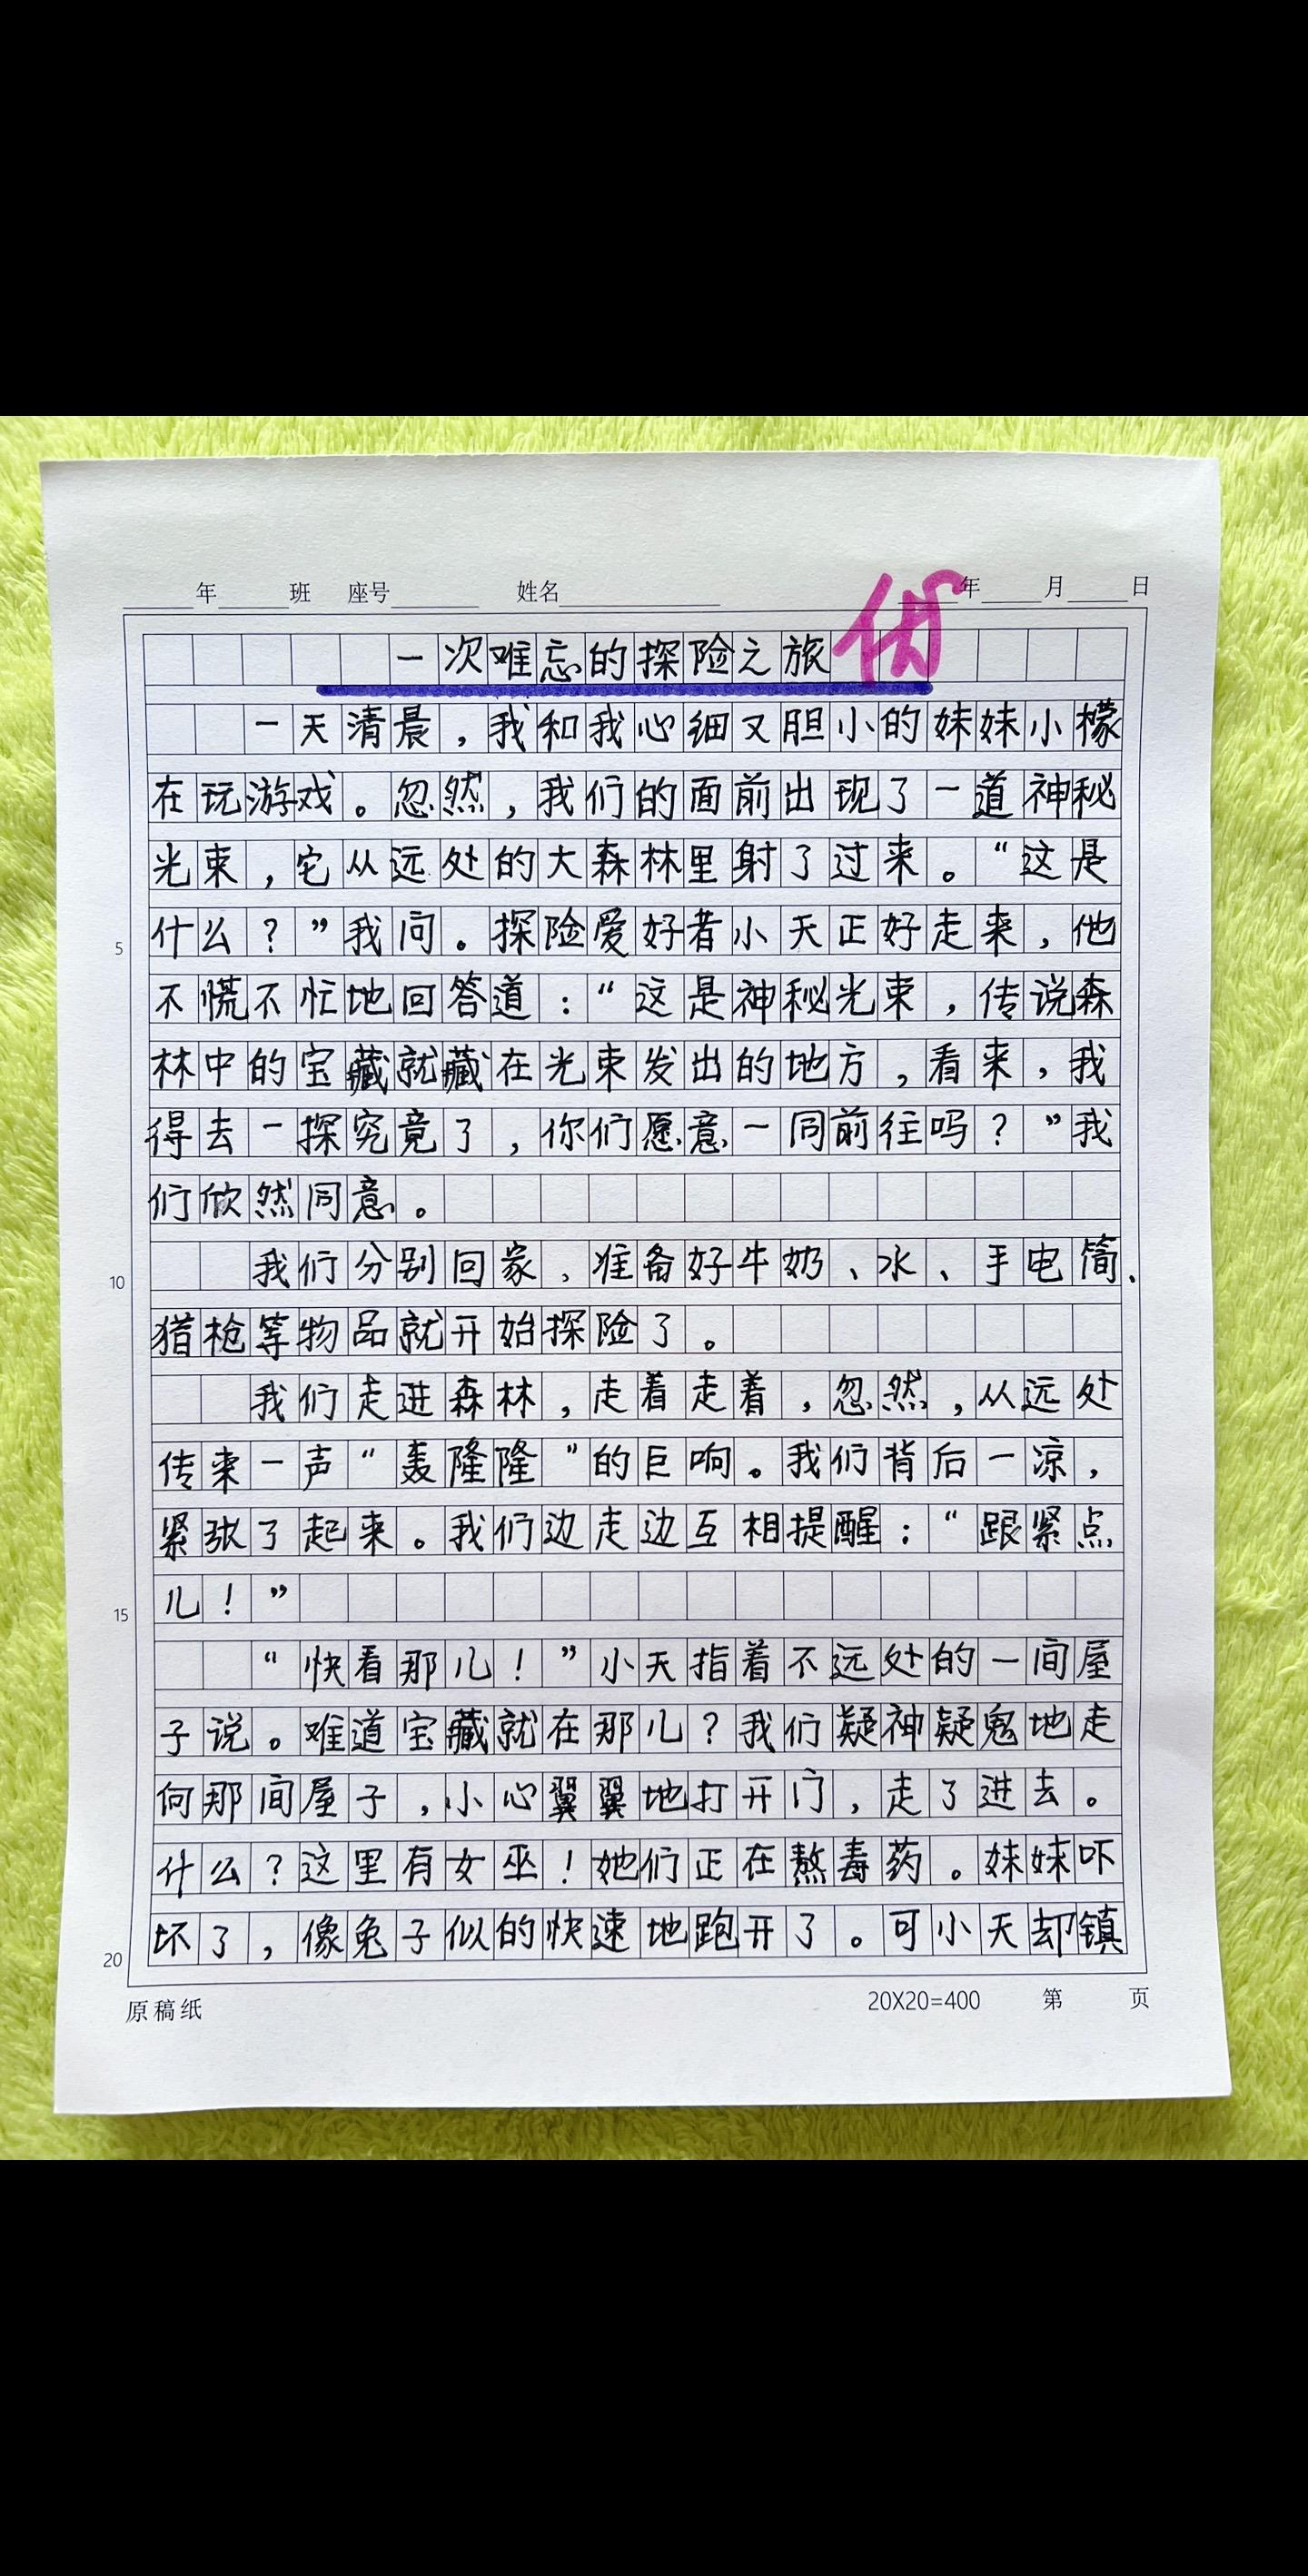 年 班 座号 姓名 年 月 日
优
一次难忘的探险之旅
一天清晨，我和我心细又胆小的妹妹小檬
在玩游戏。忽然，我们的面前出现了一道神秘
光束，它从远处的大森林里射了过来。“这是
什么？”我问。探险爱好者小天正好走来，他
5
不慌不忙地回答道：“这是神秘光束，传说森
林中的宝藏就藏在光束发出的地方，看来，我
得去一探究竟了，你们愿意一同前往吗？”我
们欣然同意。
我们分别回家，准备好牛奶、水、手电筒、
10
猎枪等物品就开始探险了。
我们走进森林，走着走着，忽然，从远处
传来一声“轰隆隆”的巨响。我们背后一凉，
紧张了起来。我们边走边互相提醒：“跟紧点
儿！”
15
“快看那儿！”小天指着不远处的一间屋
子说。难道宝藏就在那儿？我们疑神疑鬼地走
向那间屋子，小心翼翼地打开门，走了进去。
什么？这里有女巫！她们正在熬毒药。妹妹吓
坏了，像兔子似的快速地跑开了。可小天却镇
20
原稿纸 20X20=400 第 页